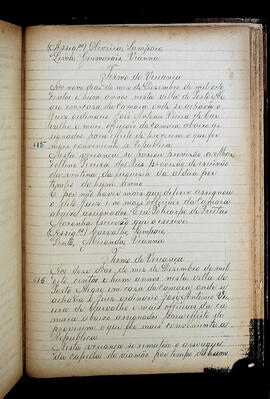 Assig.os Oliveira, Sampaio
Lima Guimarães, Vianna
Termo de Vereança
Aos nove dias do mes de Dezembro de mil oito
centos e hum annos nesta villa de Porto Ale
gre em caza da camara onde se achava o
Juiz ordinario José Antonio Vieira de Car
valho e mais officiaes da camara abaixo as
signados para effeito de proverem o que for
mais conveniente a Republica.
415
Nesta vereança se passou provizão a
de escrivão
da ventena, da freguezia da aldeia por
tempo de hum anno
E por não haver mais que deferir assignou
o dito Juiz e os mais officiaes da camara
abaixo assignados. Eu Policarpo de Freitas
Noronha Escrivão que o escrevi
Assig.os Carvalho, Sampaio,
Pinto, Miranda, Vianna
Termo de Vereança
416
Aos doze dias do mes de Dezembro de mil
oito centos e hum annos nesta villa de
Porto Alegre em caza da camara onde se
achava o Juiz ordinario José Antonio Vi
eira de Carvalho e mais officiaes da ca
mara abaixo assignados para effeito de
proverem o que for mais conveniente a
Republica
Nesta vereança se rematou o assougue
da capella de viamão por tempo de hum